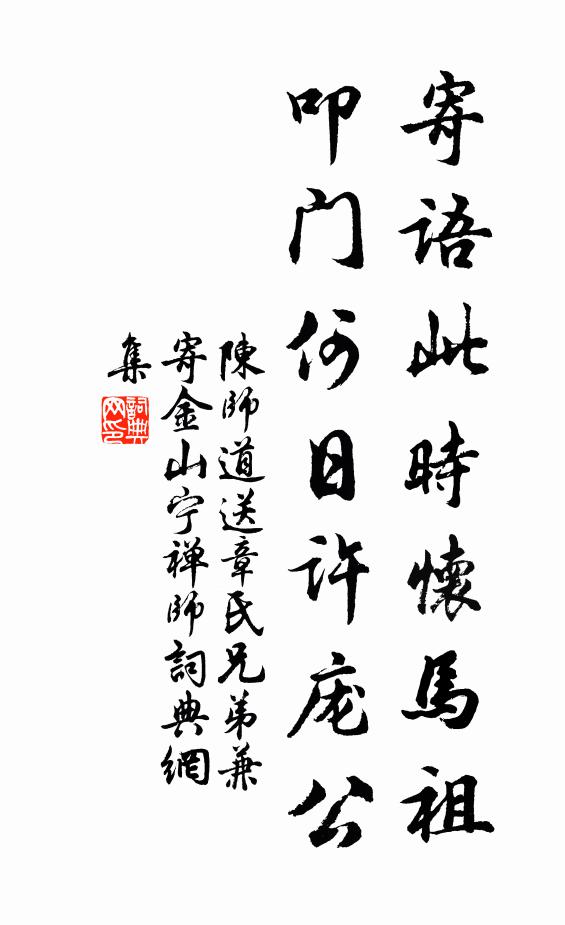 寄语此時懷馬祖
叩门何日许庞公
陳師道送章氏兄弟兼
寄金山宁禅師詞典網
集
詞典
网印